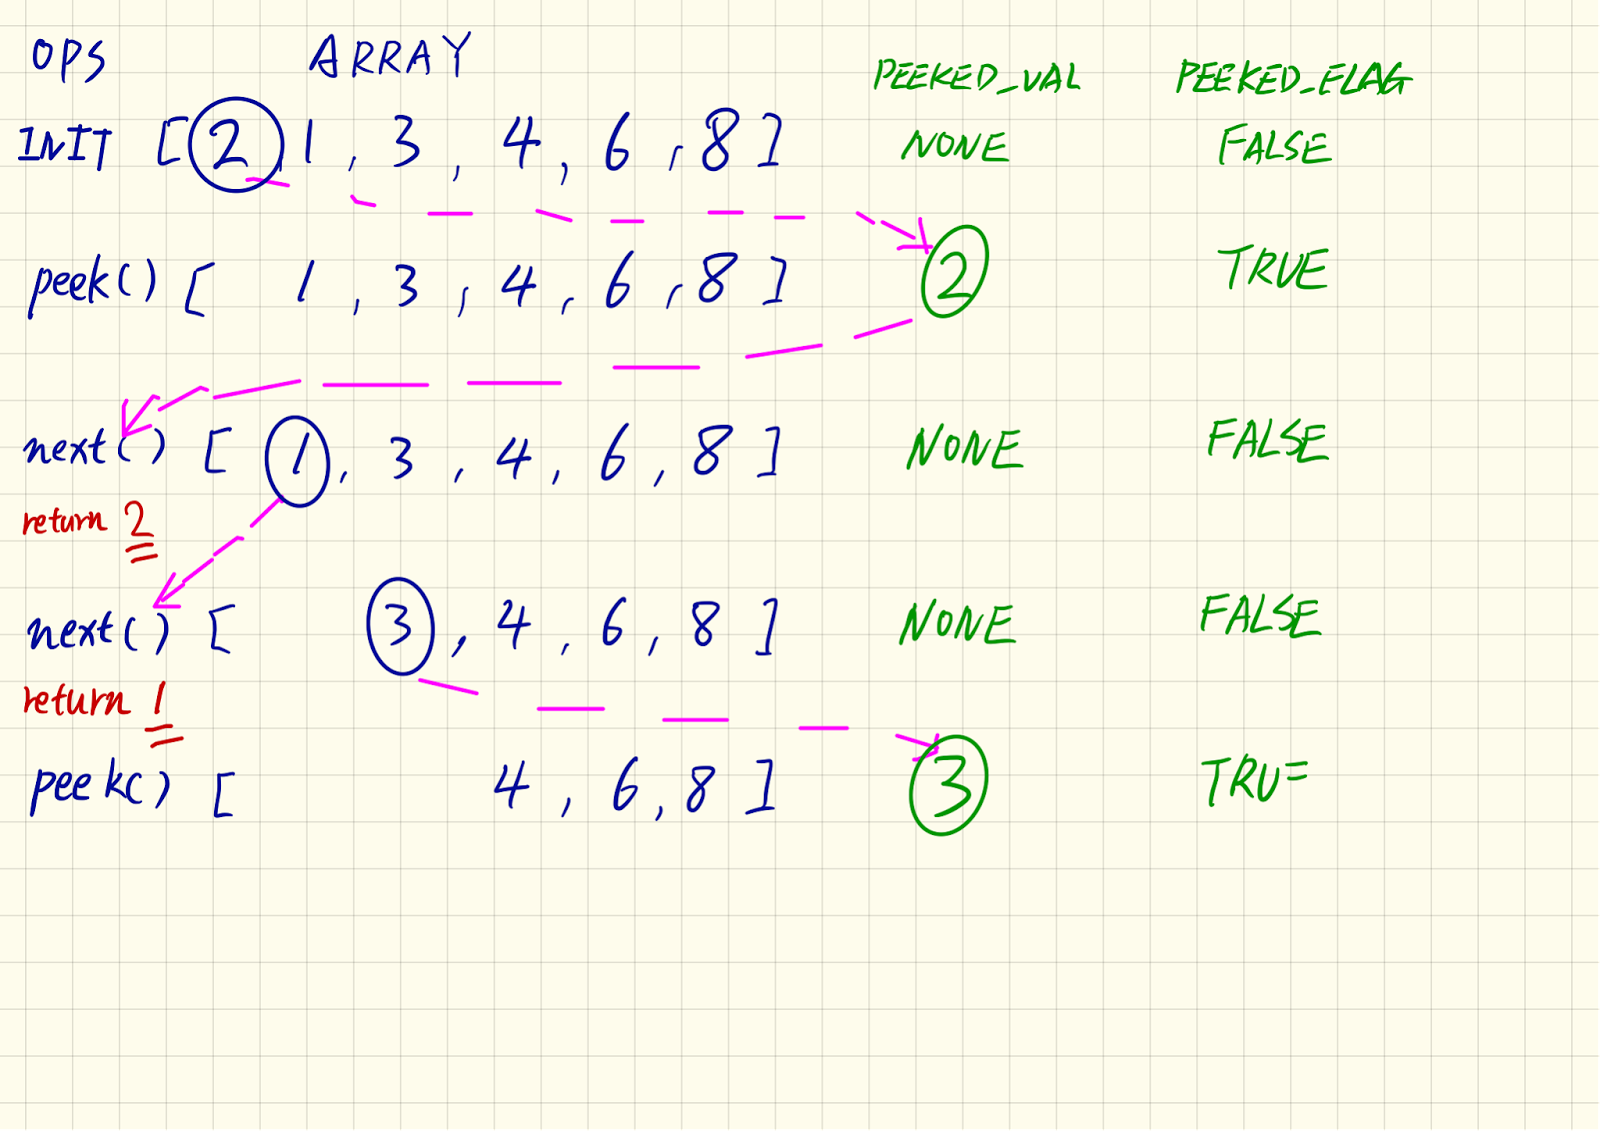 OPS ARRAY PEEKED_VAL PEEKED_FLAG
INIT [ 2, 1, 3, 4, 6, 8 ] NONE FALSE
peek() [ 1, 3, 4, 6, 8 ] 2 TRUE
next() [ 1, 3, 4, 6, 8 ] NONE FALSE
return 2
next() [ 3, 4, 6, 8 ] NONE FALSE
return 1
peek() [ 4, 6, 8 ] 3 TRUE